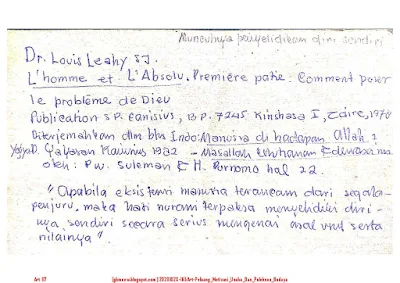 Munculnya penyelidikan diri sendiri
Dr. Louis Leahy SJ.
L'homme et L'Absolu. Première patie: Comment poser
le problème de Dieu
Publication S P. Canisius, B P. 7245 Kinshasa I, Zaire, 1970
Diterjemahkan dlm bhs Indo: Manusia di hadapan Allah 1
Yogya. Yayasan Kanisius 1982 - Masalah Ketuhanan Dewasa ini
oleh: Pw. Suleman & H. Purnomo hal 22.
"Apabila eksistensi manusia terancam dari segala
penjuru, maka hati nurani terpaksa menyelidiki diri-
nya sendiri secara serius mengenai asal usul serta
nilainya".
Art 07